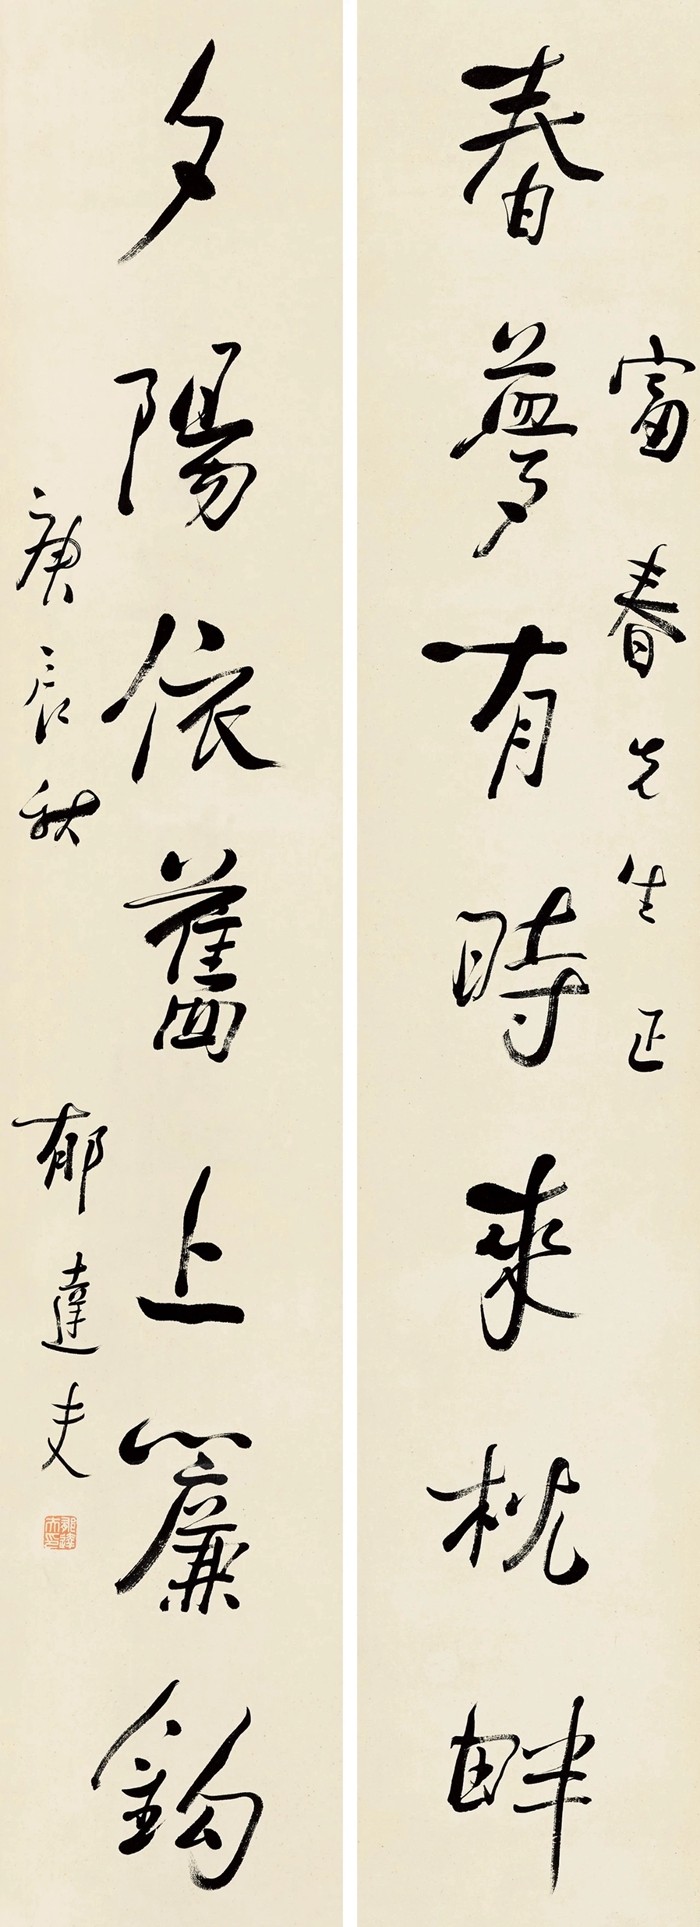 富春先生正
春夢有時來枕畔
夕陽依舊上簾鈎
庚辰秋
郁達夫